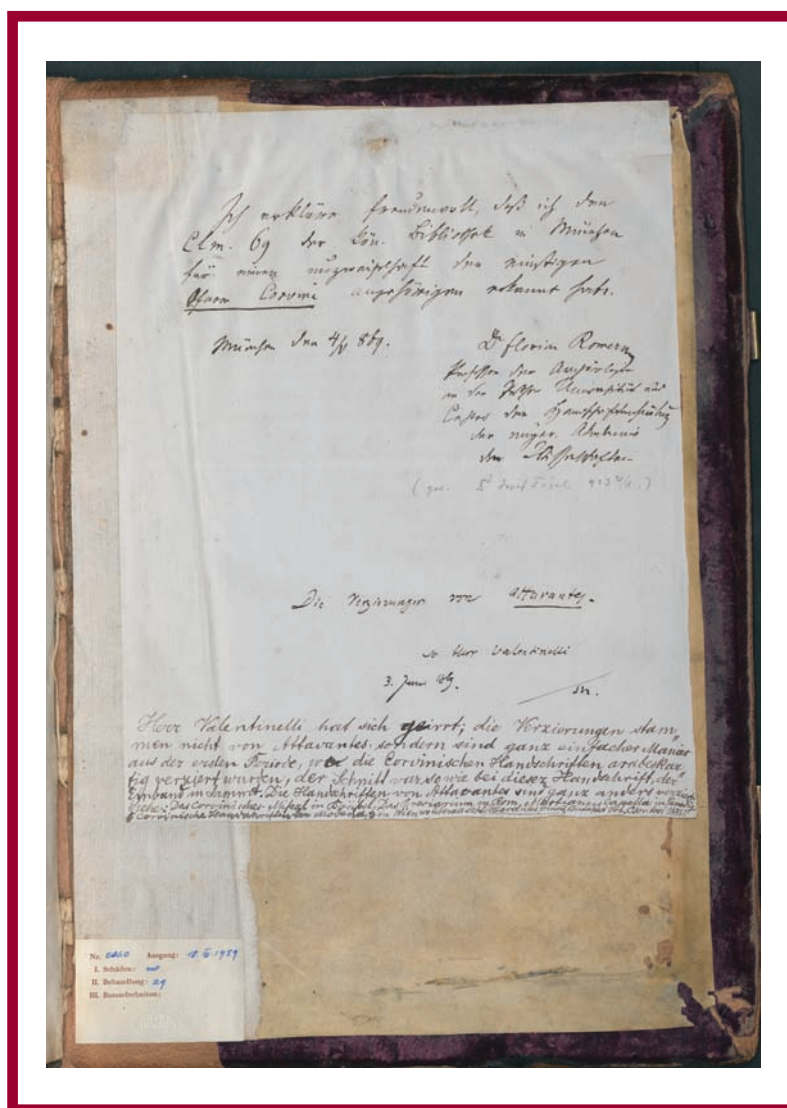 Ich erkläre freudenvoll, daß ich den
Clm. 69 der Kön. Bibliothek in München
für einen unzweifelhaft der einstigen
Ofner Corvini angehörigen erkannt habe.
München den 4/ 869.
Dr Florian Romer
Professor der Archäologie
an der Pesther Universität und
Custos der Handschriften
der ungar. Akademie
der
Die Verzierungen von Attavantes.
Herr Valentinelli
3. Juni 869.
Herr Valentinelli hat sich geirrt; die Verzierungen stam-
men nicht von Attavantes, sondern sind ganz einfacher Manier
aus der ersten Periode, wo die Corvinischen Handschriften arabeskar-
tig verziert wurden, der Schnitt war sowie bei dieser Handschrift, der
Einband in Sammt. Die Handschriften von Attavantes sind ganz anders verziert
siehe: Das Corvinische Missal in Brüssel, Das Breviarium in Rom, Martianus Capella in
Corvinische Handschriften in Modena,
Nr. Ausgang: 1959
I. Schäden:
II. Behandlung:
III. Besonderheiten: